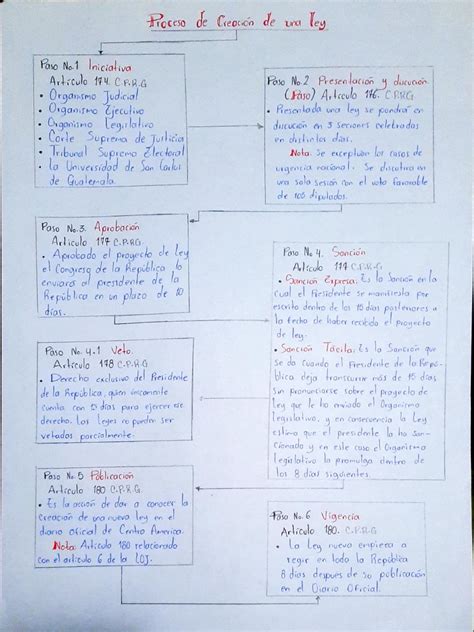 Proceso de Creación de una ley
Paso No.1 Iniciativa
Artículo 174. C.P.R.G
• Organismo Judicial
• Organismo Ejecutivo
• Organismo Legislativo
• Corte Suprema de Justicia
• Tribunal Supremo Electoral
• la Universidad de San Carlos
de Guatemala.
Paso No.2 Presentación y discución
(Paso) Artículo 176. C.P.R.G
• Presentada una ley se pondrá en
discución en 3 seciones celebradas
en distintos días.
Nota: Se exceptuan los casos de
urgencia nacional. Se discutira en
una sola sesión con el voto favorable
de 105 diputados.
Paso No.3. Aprobación
Artículo 177 C.P.R.G.
• Aprobado el proyecto de ley
el Congreso de la República lo
enviará al presidente de la
República en un plazo de 10
días.
Paso No 4. Sanción
Artículo 177 C.P.R.G
• Sanción Expresa: Es la Sanción en la
cual el Presidente se manifiesta por
escrito dentro de los 15 días posteriores a
la fecha de haber recibido el proyecto
de ley.
• Sanción Tácita: Es la Sanción que
se da cuando el Presidente de la Repú-
blica deja transcurrir más de 15 días
sin pronunciarse sobre el proyecto de
Ley que le ha enviado el Organismo
Legislativo, y en consecuencia la Ley
estima que el presidente la ha San-
cionado y en este caso el Organismo
Legislativo la promulga dentro de
los 8 días siguientes.
Paso No. 4.1 Veto.
Artículo 178 C.P.R.G
• Derecho exclusivo del Presidente
de la República, quien unicamente
cuenta con 15 días para ejercer ese
derecho. Las leyes no pueden ser
vetadas parcialmente.
Paso No 5 Publicación
Artículo 180 C.P.R.G
• Es la acción de dar a conocer la
creación de una nueva ley en el
diario oficial de Centro America.
Nota: Artículo 180 relacionado
con el artículo 6 de la LOJ.
Paso No. 6 Vigencia
Artículo 180. C.P.R.G
• La Ley nueva empieza a
regir en todo la República
8 días despues de su publicación
en el Diario Oficial.